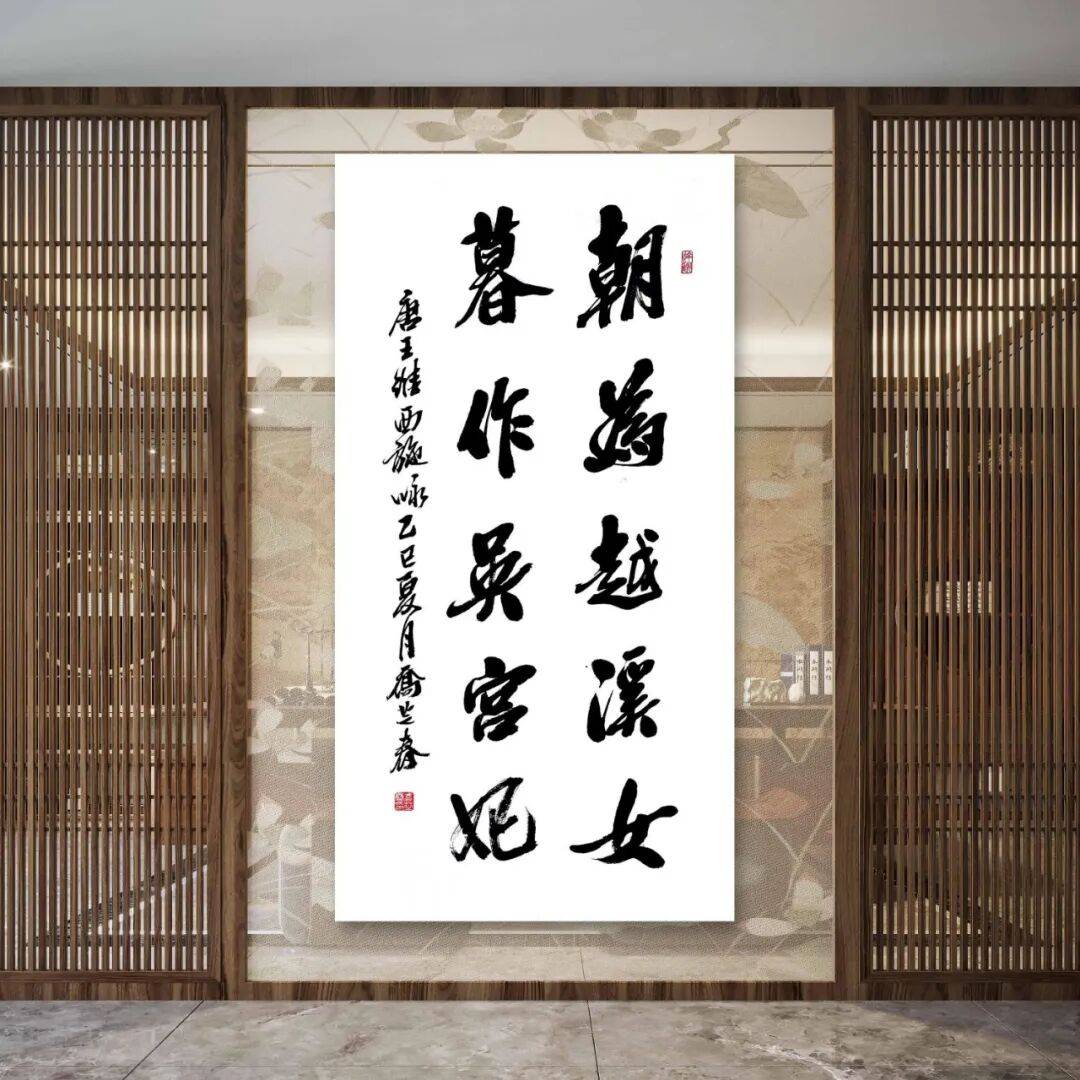 朝為越溪女
暮作吳宮妃
唐王維西施咏乙巳夏月